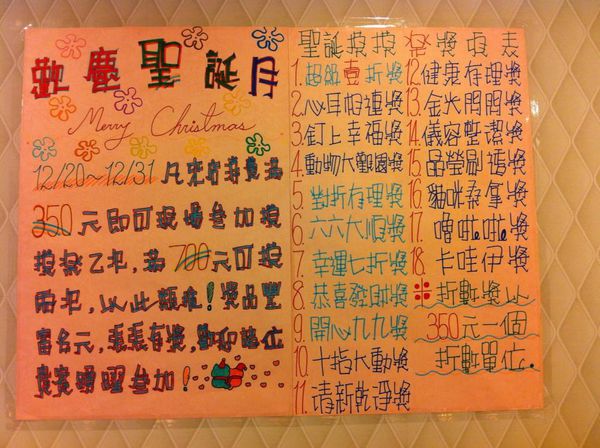 歡慶聖誕月
Merry Christmas
12/20~12/31 凡來店消費滿
350元即可現場參加摸
摸樂乙次,滿700元可摸
兩次,以此類推!獎品豐
富多元,張張有獎,歡迎諸位
貴賓踴躍參加!
聖誕摸摸樂獎項表
1.超級壹折獎
2.心耳相連獎
3.釘上幸福獎
4.動物大觀園獎
5.對折有理獎
6.六六大順獎
7.幸運七折獎
8.恭喜發財獎
9.開心九九獎
10.十指大動獎
11.清新乾淨獎
12.健康有理獎
13.金光閃閃獎
14.儀容整潔獎
15.晶瑩剔透獎
16.貓咪桑拿獎
17.嚕啦啦獎
18.卡哇伊獎
※折數獎以
350元一個
折數單位.